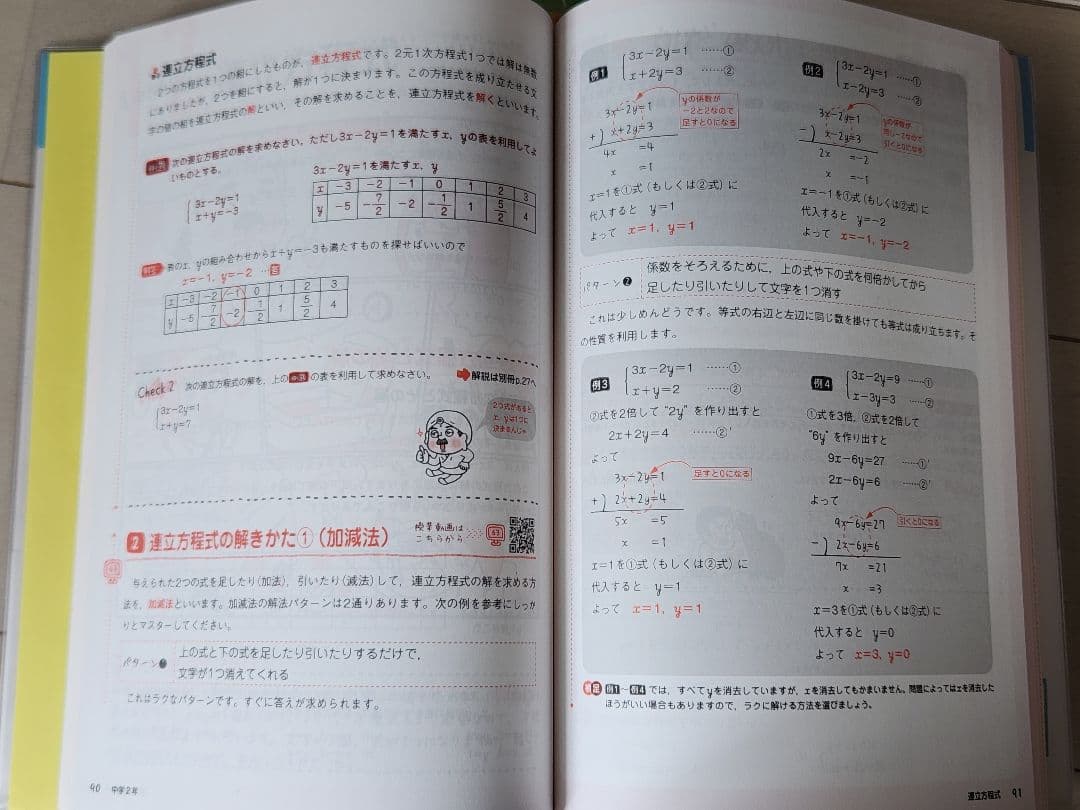 連立方程式
2つの方程式を1つの組にしたものが、連立方程式です。2元1次方程式1つでは解は無数
にありましたが、2つを組にすると、解が1つに決まります。この方程式を成り立たせる文
字の値の組を連立方程式の解といい、その解を求めることを、連立方程式を解くといいます。
次の連立方程式の解を求めなさい。ただし3x−2y=1を満たすx、yの表を利用してよ
いものとする。
3x−2y=1を満たすx、y
3x−2y=1
x+y=−3
x −3 −2 −1 0 1 2 3
y −5 −7/2 −2 −1/2 1 5/2 4
表のx、yの組み合わせからx+y=−3も満たすものを探せばいいので
x=−1、y=−2 …答
x −3 −2 −1 0 1 2 3
y −5 −7/2 −2 −1/2 1 5/2 4
Check 2 次の連立方程式の解を、上の の表を利用して求めなさい。
解説は別冊p.27へ
3x−2y=1
x+y=7
2つ式があると
x、yは1つに
決まるんじゃ
2 連立方程式の解きかた①(加減法)
授業動画は
こちらから
63
与えられた2つの式を足したり(加法)、引いたり(減法)して、連立方程式の解を求める方
法を、加減法といいます。加減法の解法パターンは2通りあります。次の例を参考にしっか
りとマスターしてください。
パターン❶
上の式と下の式を足したり引いたりするだけで、
文字が1つ消えてくれる
これはラクなパターンです。すぐに答えが求められます。
90 中学2年
例1
3x−2y=1 ……①
x+2y=3 ……②
3x−2y=1
+) x+2y=3
4x =4
x =1
yの係数が
−2と2なので
足すと0になる
x=1を①式(もしくは②式)に
代入すると y=1
よって x=1、y=1
例2
3x−2y=1 ……①
x−2y=3 ……②
3x−2y=1
−) x−2y=3
2x =−2
x =−1
yの係数が
同じ−2なので
引くと0になる
x=−1を①式(もしくは②式)に
代入すると y=−2
よって x=−1、y=−2
パターン❷
係数をそろえるために、上の式や下の式を何倍かしてから
足したり引いたりして文字を1つ消す
これは少しめんどうです。等式の右辺と左辺に同じ数を掛けても等式は成り立ちます。そ
の性質を利用します。
例3
3x−2y=1 ……①
x+y=2 ……②
②式を2倍して “2y” を作り出すと
2x+2y=4 ……②′
よって
3x−2y=1
+) 2x+2y=4
5x =5
x =1
足すと0になる
x=1を①式(もしくは②式)に
代入すると y=1
よって x=1、y=1
例4
3x−2y=9 ……①
x−3y=3 ……②
①式を3倍、②式を2倍して
“6y” を作り出すと
9x−6y=27 ……①′
2x−6y=6 ……②′
よって
9x−6y=27
−) 2x−6y=6
7x =21
x =3
引くと0になる
x=3を①式(もしくは②式)に
代入すると y=0
よって x=3、y=0
補足 例1〜例4では、すべてyを消去していますが、xを消去してもかまいません。問題によってはxを消去した
ほうがいい場合もありますので、ラクに解ける方法を選びましょう。
連立方程式 91